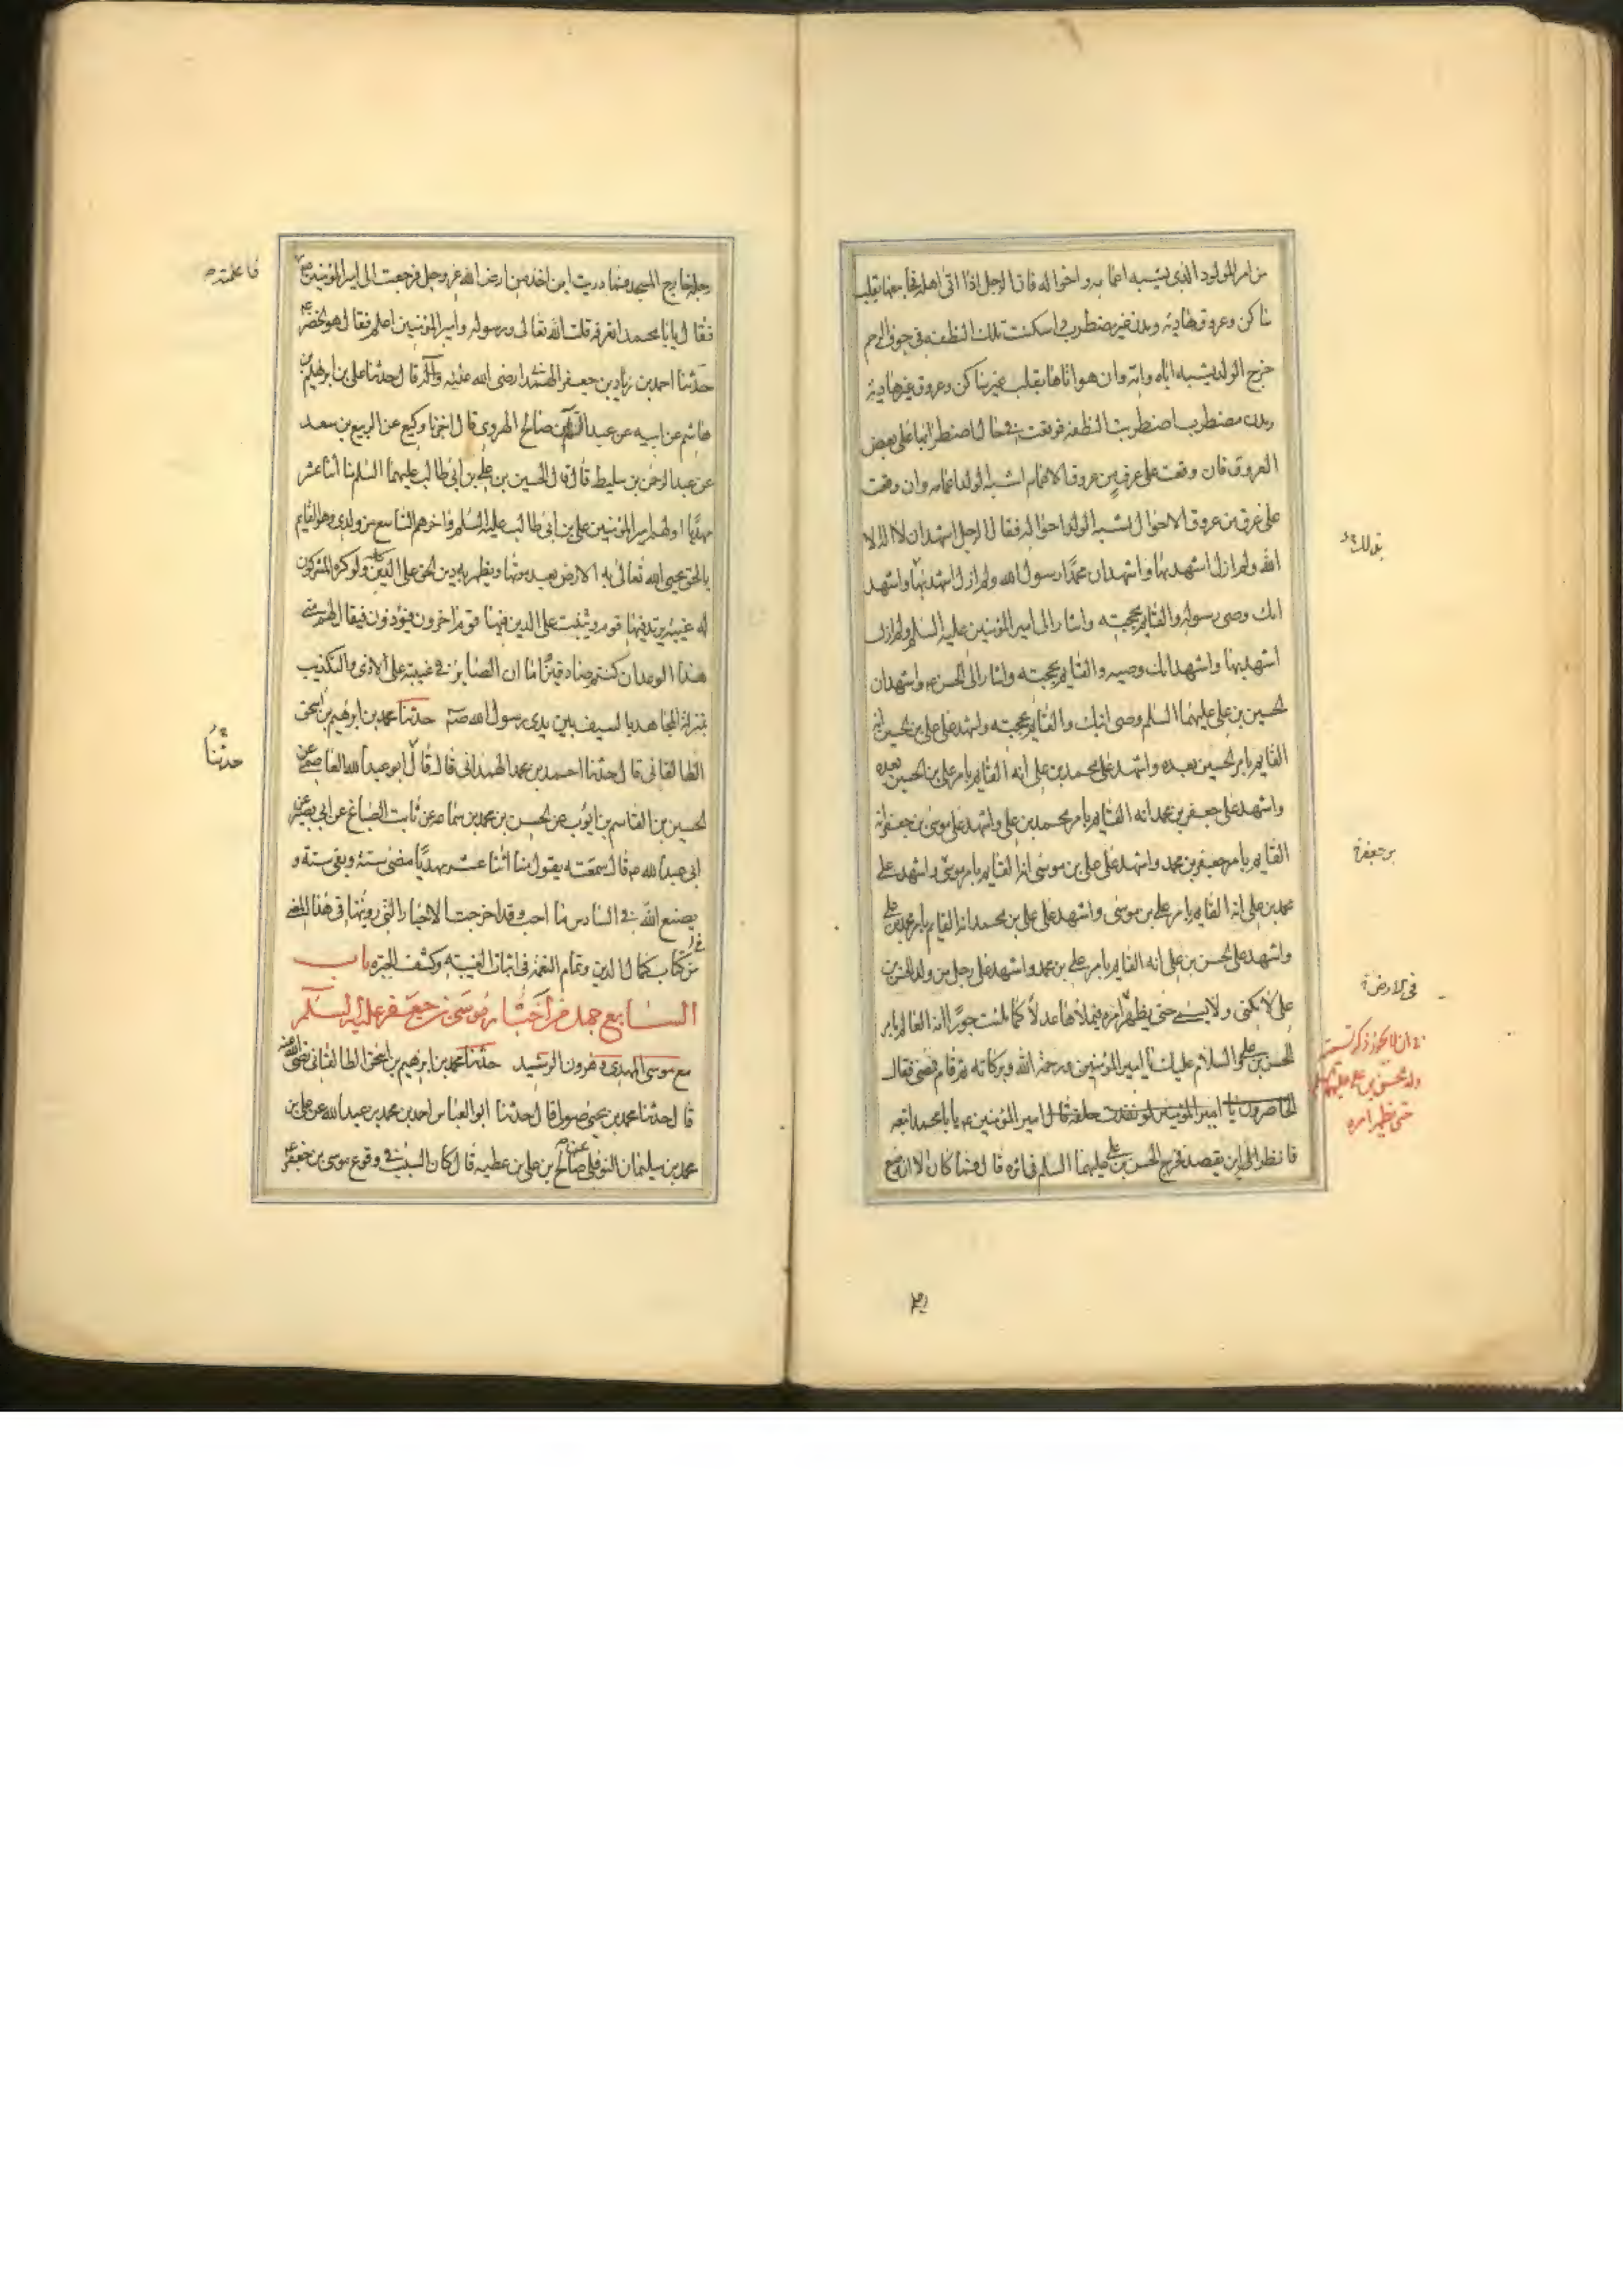 من امر المولود الذی یشبه اعمامه و اخواله فان الرجل اذا اتی اهله فجامعها بقلب
ساکن وعروق هادئة وبدن غیر مضطرب اسکنت تلک النطفة فی جوف الرحم
خرج الولد یشبه اباه وامه وان هو اتاها بقلب غیر ساکن وعروق غیر هادئة
وبدن مضطرب اضطربت النطفة فوقعت فی حال اضطرابها علی بعض
العروق فان وقعت علی عرق من عروق الاعمام اشبه الولد اعمامه وان وقعت
علی عرق من عروق الاخوال اشبه الولد اخواله فقال الرجل اشهد ان لا اله الا
الله ولم ازل اشهد بها واشهد ان محمدا رسول الله ولم ازل اشهد بها واشهد
انک وصی رسوله والقایم بحجته واشار الی امیر المؤمنین علیه السلم ولم ازل
اشهد بها واشهد انک وصیه والقایم بحجته واشار الی الحسن واشهد ان
الحسین بن علی علیهما السلم وصی ابیک والقایم بحجته واشهد علی علی بن الحسین انه
القایم بامر الحسین بعده واشهد علی محمد بن علی انه القایم بامر علی بن الحسین بعده
واشهد علی جعفر بن محمد انه القایم بامر محمد بن علی واشهد علی موسی بن جعفر انه
القایم بامر جعفر بن محمد واشهد علی علی بن موسی انه القایم بامر موسی واشهد علی
محمد بن علی انه القایم بامر علی بن موسی واشهد علی علی بن محمد انه القایم بامر محمد بن علی
واشهد علی الحسن بن علی انه القایم بامر علی بن محمد واشهد علی رجل من ولد الحسن بن
علی لا یکنی ولا یسمی حتی یظهر امره فیملأها عدلا کما ملئت جورا انه القایم بامر
الحسن بن علی والسلام علیک یا امیر المؤمنین ورحمة الله وبرکاته ثم قام فمضی فقال
امیر المؤمنین یا با محمد اتبعه
فانظر الی این یقصد فخرج الحسن بن علی علیهما السلم فی اثره قال فما کان الا ان وضع
بن جعفر
فی الارض
حتی یظهر امره
رجله خارج المسجد فما دریت این اخذ من ارض الله عز وجل فرجعت الی امیر المؤمنین
فقال یا با محمد اتعرفه قلت الله تعالی ورسوله وامیر المؤمنین اعلم فقال هو الخضر
حدثنا احمد بن زیاد بن جعفر الهمدانی رضی الله عنه قال حدثنا علی بن ابرهیم بن
هاشم عن ابیه عن عبد السلام بن صالح الهروی قال اخبرنا وکیع عن الربیع بن سعد
عن عبد الرحمن بن سلیط قال قال الحسین بن علی بن ابی طالب علیهما السلم منا اثنا عشر
مهدیا اولهم امیر المؤمنین علی بن ابی طالب علیه السلم واخرهم التاسع من ولدی وهو القایم
بالحق یحیی الله تعالی به الارض بعد موتها ویظهر به دین الحق علی الدین کله ولو کره المشرکون
له غیبة یرتد فیها قوم ویثبت علی الدین فیها قوم اخرون فیؤذون فیقال لهم متی
هذا الوعد ان کنتم صادقین اما ان الصابر فی غیبته علی الاذی والتکذیب
بمنزلة المجاهد بالسیف بین یدی رسول الله حدثنا محمد بن ابرهیم بن اسحق
الطالقانی قال حدثنا احمد بن محمد الهمدانی قال قال ابو عبد الله العاصمی عن
الحسین بن القاسم بن ایوب عن الحسن بن محمد بن سماعه عن ثابت الصباغ عن ابی بصیر عن
ابی عبد الله قال سمعته یقول منا اثنا عشر مهدیا مضی ستة وبقی ستة و
یصنع الله فی السادس ما احب وقد اخرجت الاخبار التی رویتها فی هذا المعنی
من کتاب کمال الدین وتمام النعمة فی اثبات الغیبه وکشف الحیره باب
السابع جمل من اخبار موسی بن جعفر علیه السلم
مع موسی المهدی وهرون الرشید حدثنا محمد بن ابرهیم بن اسحق الطالقانی رضی الله عنه
قال حدثنا محمد بن یحیی صولی قال حدثنا ابو العباس احمد بن محمد بن عبد الله عن علی بن
محمد بن سلیمان النوفلی عن صالح بن علی بن عطیه قال کان السبب فی وقوع موسی بن جعفر
فاعلمته
حدثنا